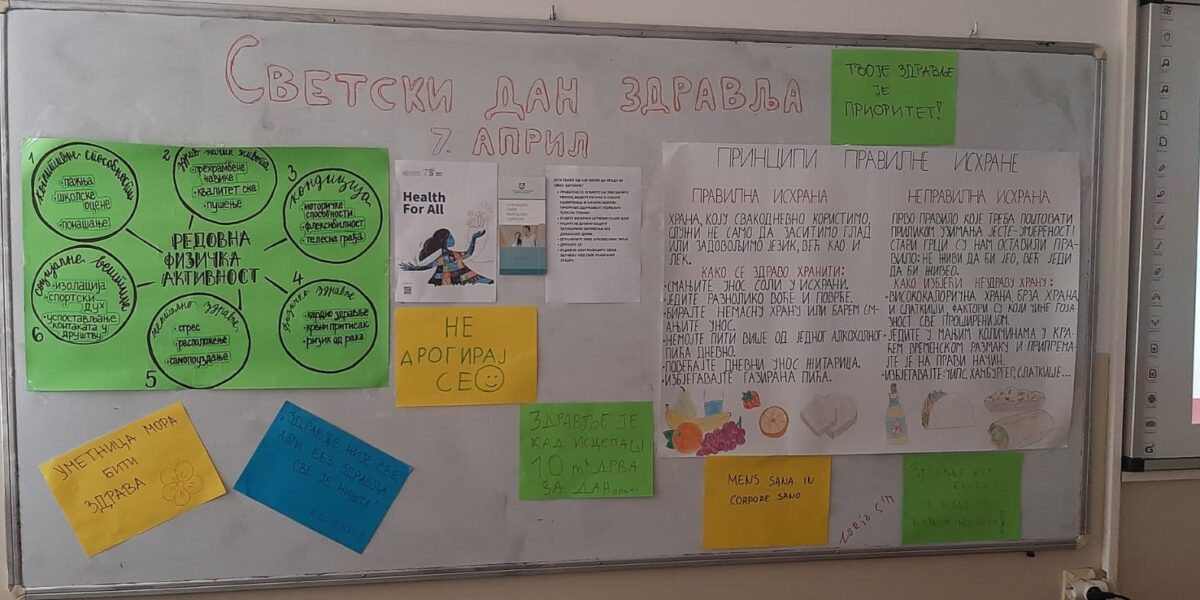 Светски дан здравља
7. април
ТВОЈЕ ЗДРАВЉЕ
ЈЕ
ПРИОРИТЕТ!
РЕДОВНА
ФИЗИЧКА
АКТИВНОСТ
1
когнитивне способности
• пажња
• школске
оцене
• понашање
2
здрав начин живота
• прехрамбене
навике
• квалитет сна
• пушење
3
кондиција
• моторичке
способности
• флексибилност
• телесна грађа
4
физичко здравље
• кардио здравље
• крвни притисак
• ризик од рака
5
ментално здравље
• стрес
• расположење
• самопоуздање
6
социјалне вештине
• изолација
• спортски
дух
• успостављање
контаката у
друштву
75
Health
For All
НЕ
ДРОГИРАЈ
СЕ
ПРИНЦИПИ ПРАВИЛНЕ ИСХРАНЕ
ПРАВИЛНА ИСХРАНА
ХРАНА, КОЈУ СВАКОДНЕВНО КОРИСТИМО,
СЛУЖИ НЕ САМО ДА ЗАСИТИМО ГЛАД
ИЛИ ЗАДОВОЉИМО ЈЕЗИК, ВЕЋ КАО И
ЛЕК.
КАКО СЕ ЗДРАВО ХРАНИТИ:
• СМАЊИТЕ УНОС СОЛИ У ИСХРАНИ.
• ЈЕДИТЕ РАЗНОЛИКО ВОЋЕ И ПОВРЋЕ.
• БИРАЈТЕ НЕМАСНУ ХРАНУ ИЛИ БАРЕМ СМ-
АЊИТЕ УНОС.
• НЕМОЈТЕ ПИТИ ВИШЕ ОД ЈЕДНОГ АЛКОХОЛНОГ
ПИЋА ДНЕВНО.
• ПОВЕЋАЈТЕ ДНЕВНИ УНОС ЖИТАРИЦА.
• ИЗБЈЕГАВАЈТЕ ГАЗИРАНА ПИЋА.
НЕПРАВИЛНА ИСХРАНА
ПРВО ПРАВИЛО КОЈЕ ТРЕБА ПОШТОВАТИ
ПРИЛИКОМ УЗИМАЊА ЈЕСТЕ-УМЕРЕНОСТ!
СТАРИ ГРЦИ СУ НАМ ОСТАВИЛИ ПРА-
ВИЛО: НЕ ЖИВИ ДА БИ ЈЕО, ВЕЋ ЈЕДИ
ДА БИ ЖИВЕО.
КАКО ИЗБЈЕЋИ НЕЗДРАВУ ХРАНУ:
• ВИСОКОКАЛОРИЧНА ХРАНА, БРЗА ХРАНА
И СЛАТКИШИ, ФАКТОРИ СУ КОЈИ ЧИНЕ ГОЈА-
ЗНОСТ СВЕ ПРОШИРЕНИЈОМ.
• ЈЕДИТЕ У МАЊИМ КОЛИЧИНАМА У КРА-
ЋЕМ ВРЕМЕНСКОМ РАЗМАКУ И ПРИПРЕМА-
ЈТЕ ЈЕ НА ПРАВИ НАЧИН.
• ИЗБЈЕГАВАЈТЕ: ЧИПС, ХАМБУРГЕР, СЛАТКИШЕ...
УМЕТНИЦА МОРА
БИТИ
ЗДРАВА
„ЗДРАВЉЕ НИЈЕ СВЕ,
АЛИ БЕЗ ЗДРАВЉА
СВЕ ЈЕ НИШТА"
ЗДРАВЉЕ ЈЕ
КАД ИСЦЕПАШ
10 m³ ДРВА
ЗА ДАН....
MENS SANA IN
CORPORE SANO